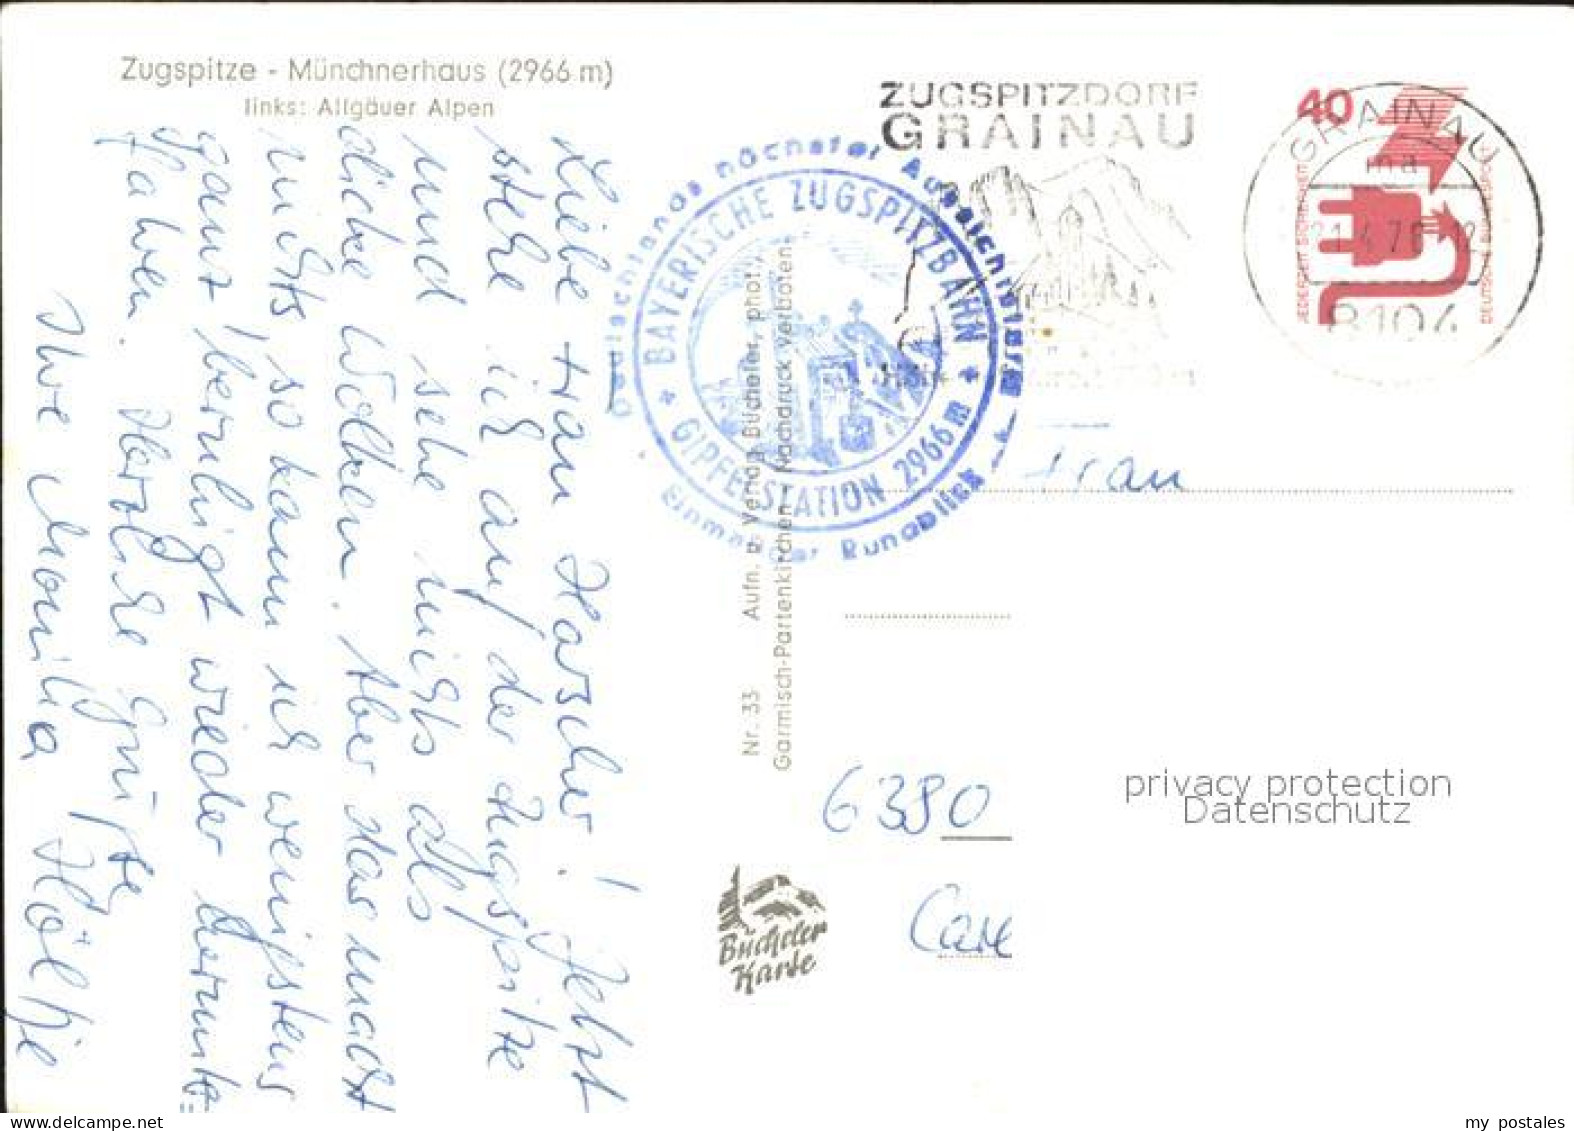 Zugspitze - Münchnerhaus (2966 m)
links: Allgäuer Alpen
Liebe Frau Harscher! Jetzt
stehe ich auf der Zugspitze
und sehe nichts als
dicke Wolken. Aber das macht
nichts, so kann ich wenigstens
ganz beruhigt wieder herunter=
fahren. Herzliche Grüße
Ihre Monika Höltje
Deutschlands höchster Aussichtsberg
BAYERISCHE ZUGSPITZBAHN
GIPFELSTATION 2966 m
Einmaliger Rundblick
Nr. 33 Aufn. u. Verlag Bücheler, phot.,
Garmisch-Partenkirchen - Nachdruck verboten.
Bücheler
Karte
ZUGSPITZDORF
GRAINAU
GRAINAU
ma
8104
40
JEDERZEIT SICHERHEIT
DEUTSCHE BUNDESPOST
Frau
6380
privacy protection
Datenschutz
my postales